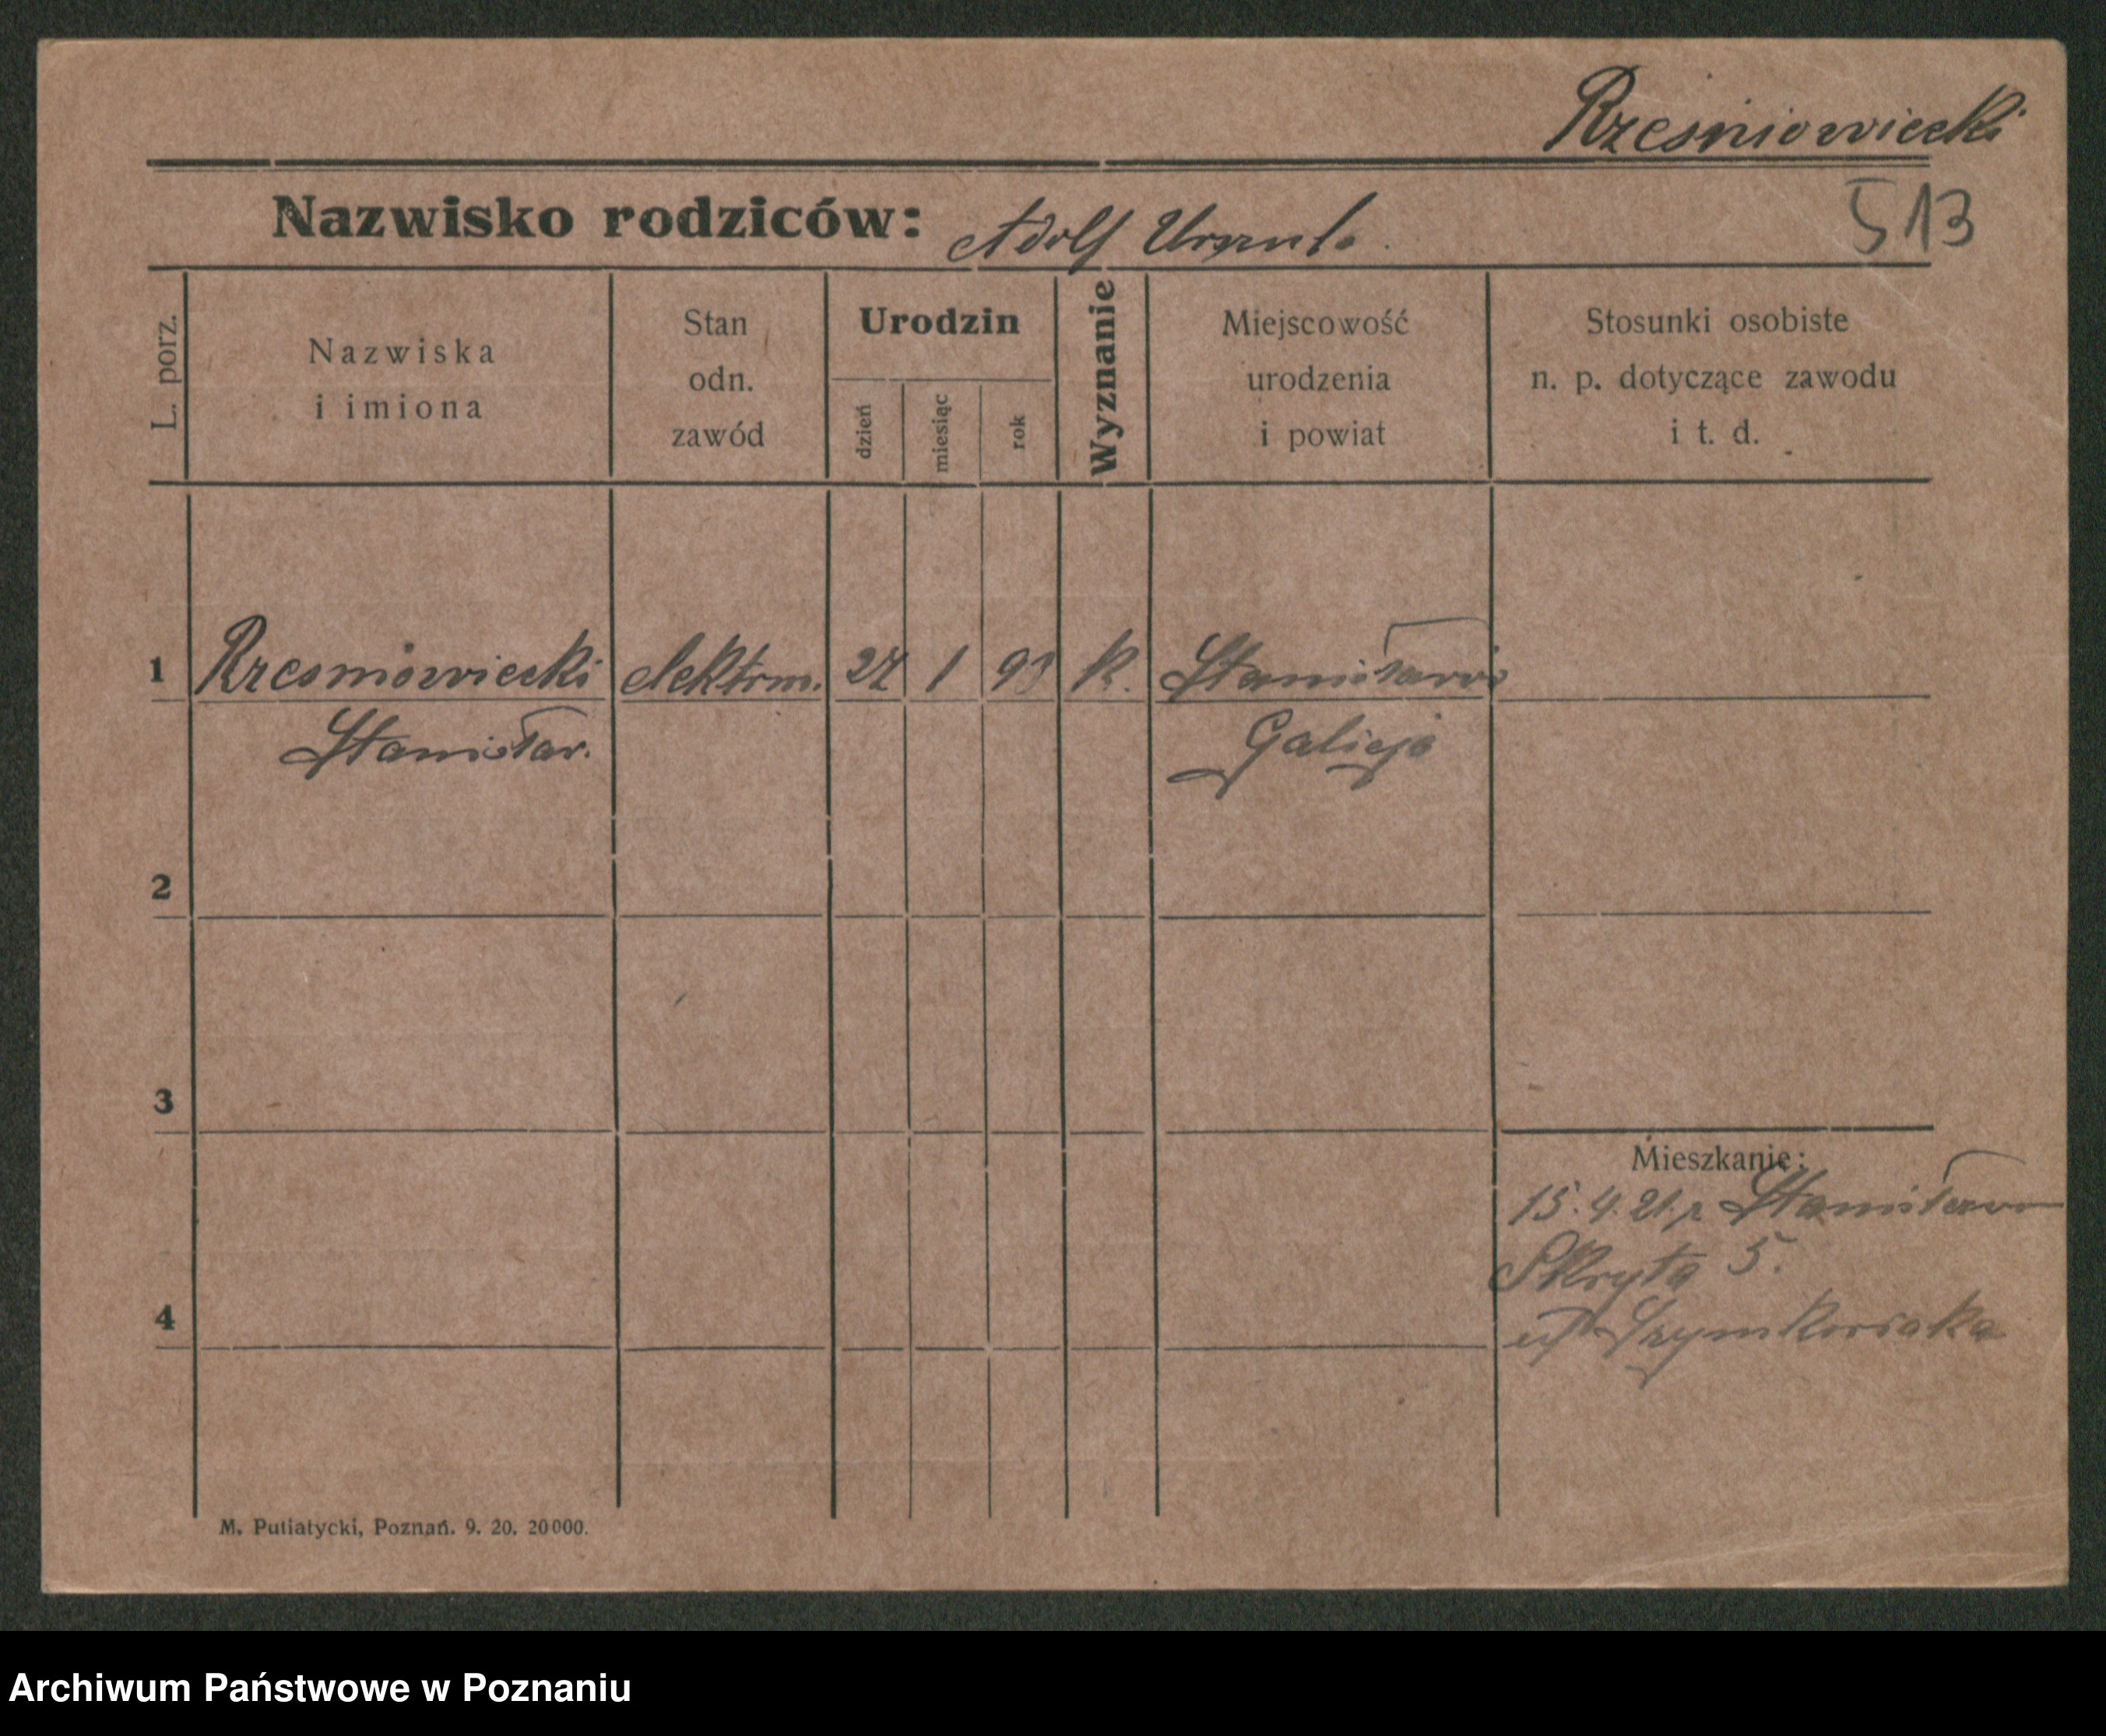 Rześniowiecki
Nazwisko rodziców: Adolf Urszula
513
L. porz.
Nazwiska
i imiona
Stan
odn.
zawód
Urodzin
dzień
miesiąc
rok
Wyznanie
Miejscowość
urodzenia
i powiat
Stosunki osobiste
n. p. dotyczące zawodu
i t. d.
1 Rzesniowiecki elektrm. 27 1 93 k. Stanisławów
Stanisław. Galicja
2
3
Mieszkanie:
15.4.21. z Stanisławow
Skryta 5.
4
Szymkowiaka
M. Putiatycki, Poznań. 9. 20. 20000.
Archiwum Państwowe w Poznaniu